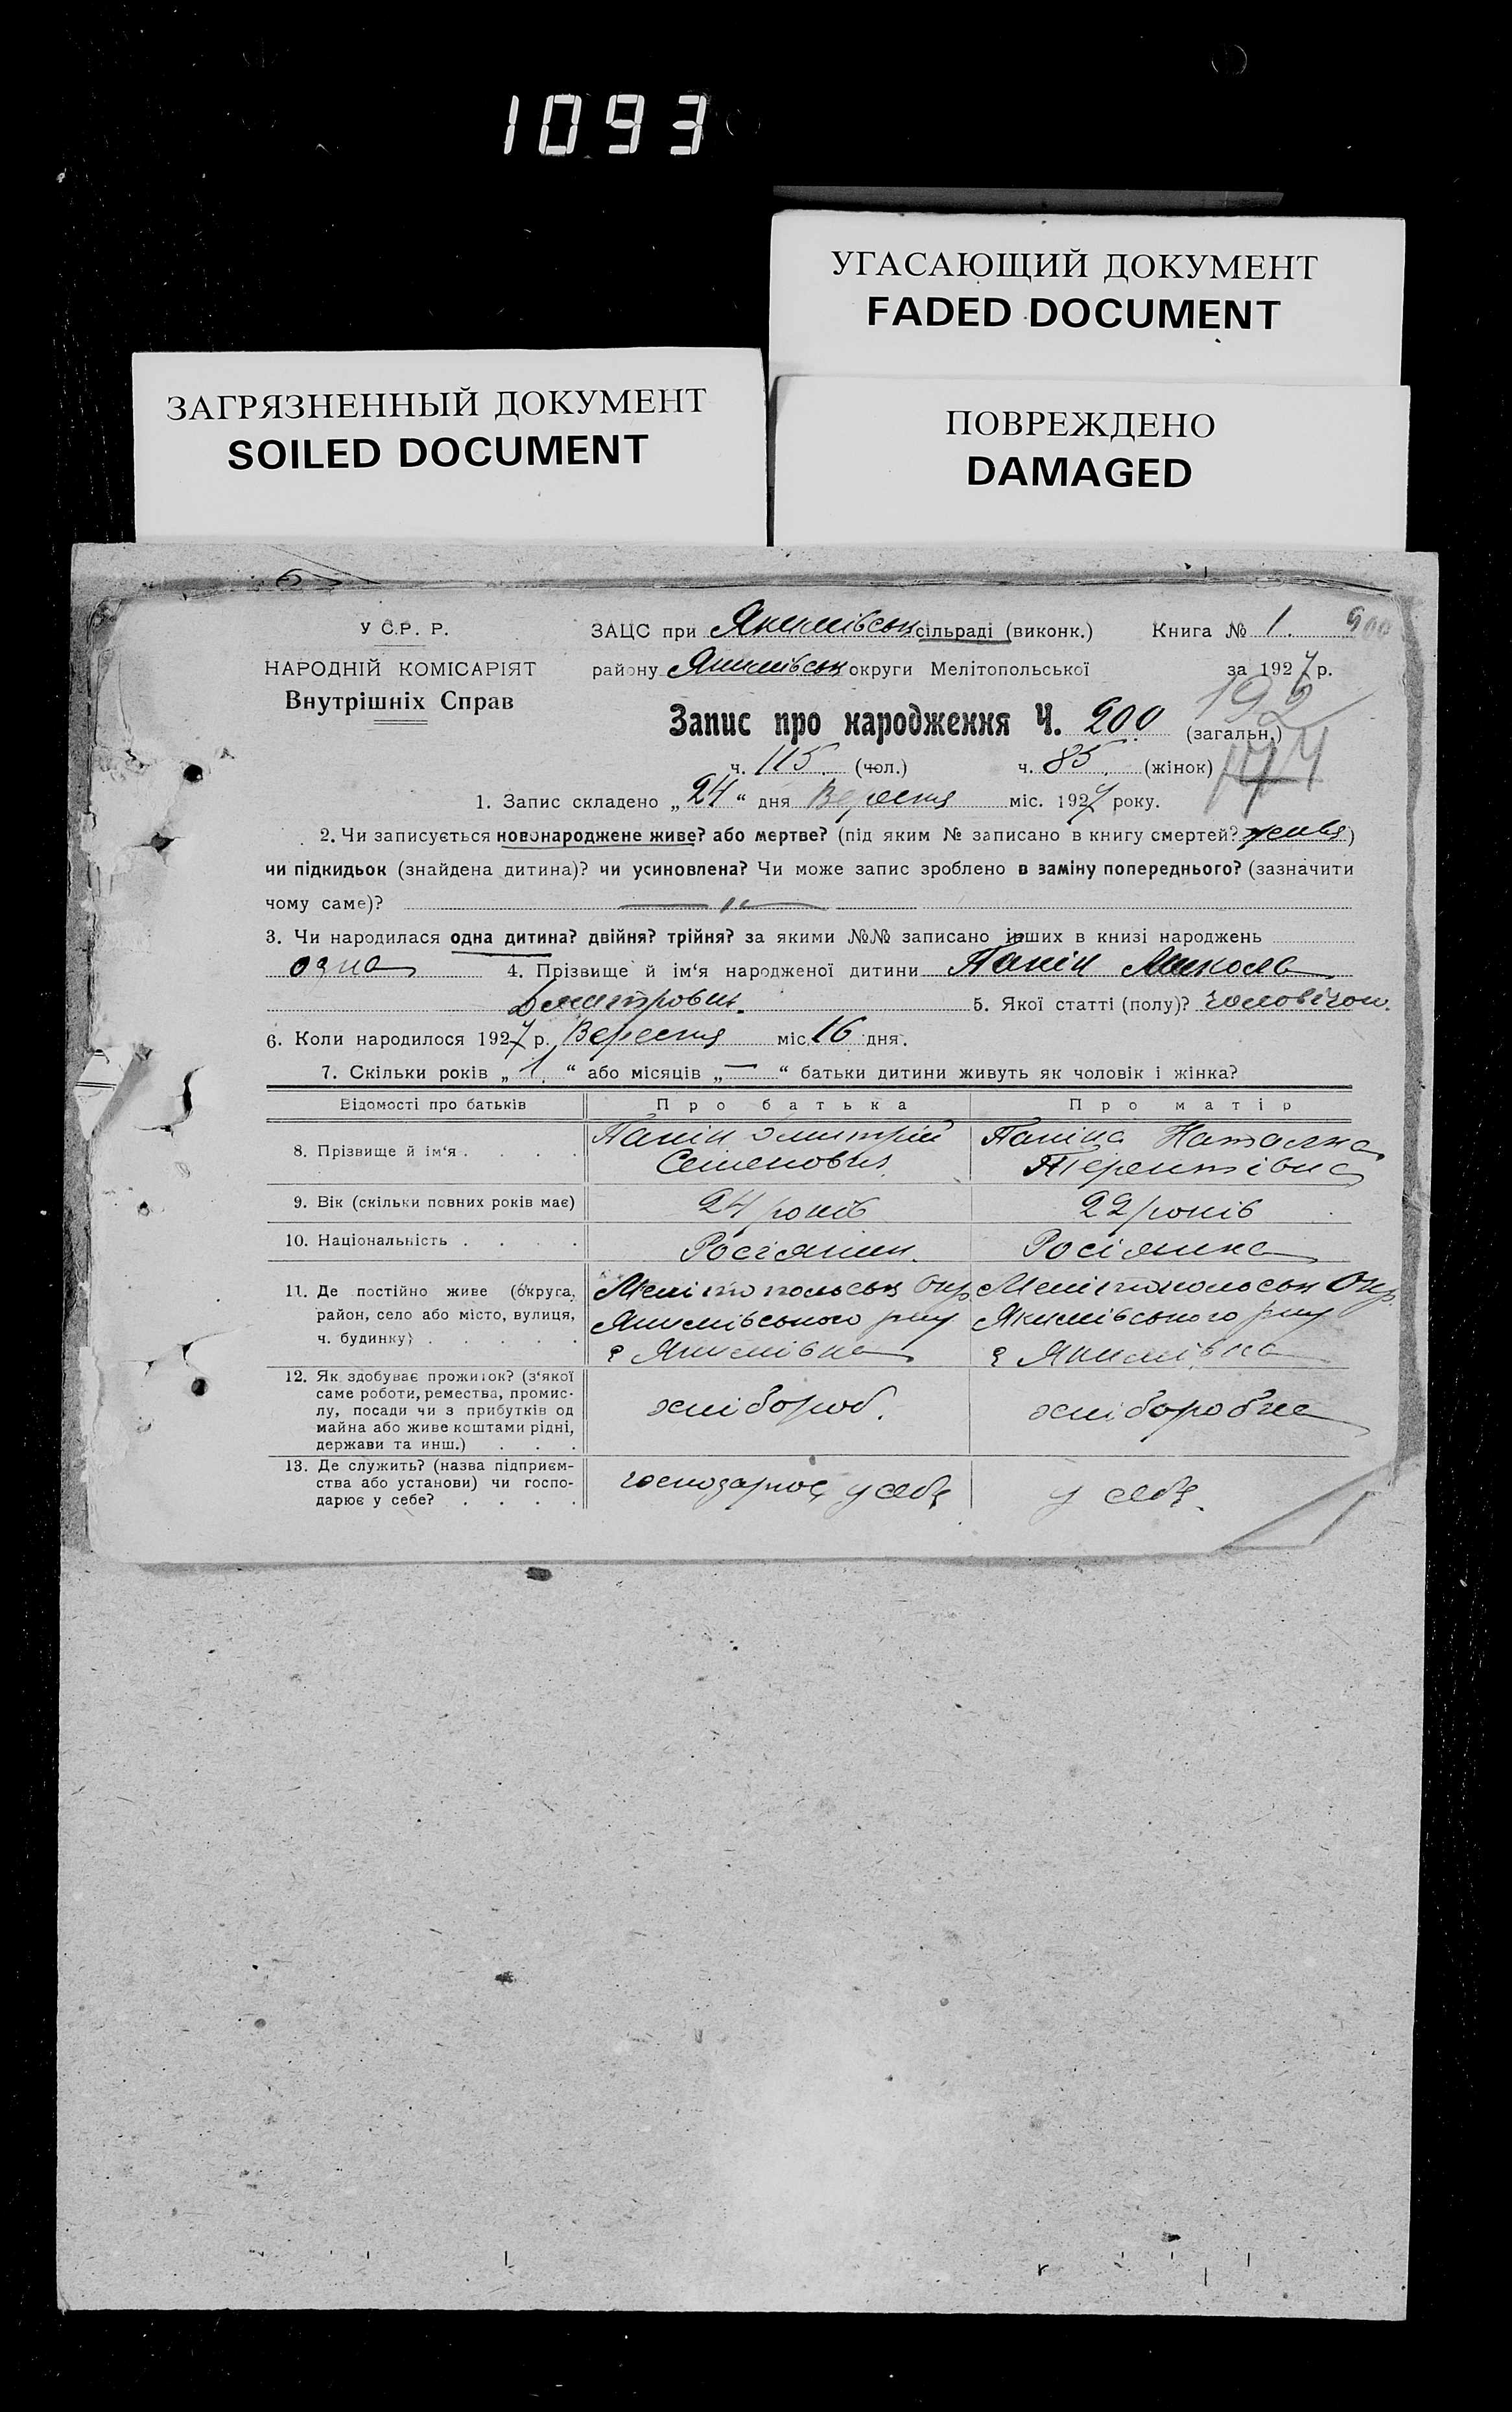 1093
УГАСАЮЩИЙ ДОКУМЕНТ
FADED DOCUMENT
ЗАГРЯЗНЕННЫЙ ДОКУМЕНТ
SOILED DOCUMENT
ПОВРЕЖДЕНО
DAMAGED
У С.Р. Р.
НАРОДНІЙ КОМІСАРІЯТ
Внутрішніх Справ
ЗАЦС при Якимівськ сільраді (виконк.) Книга № 1. 900
району Якимівськ округи Мелітопольської за 1927 р.
Запис про народження Ч. 200 (загальн.) 192
ч. 115. (чол.) ч. 85. (жінок)
1. Запис складено „24“ дня Вересня міс. 1927 року.
2. Чи записується новонароджене живе? або мертве? (під яким № записано в книгу смертей? живе)
чи підкидьок (знайдена дитина)? чи усиновлена? Чи може запис зроблено в заміну попереднього? (зазначити
чому саме)?
3. Чи народилася одна дитина? двійня? трійня? за якими №№ записано інших в книзі народжень
одна 4. Прізвище й ім‘я народженої дитини Панін Микола
Дмитрович. 5. Якої статті (полу)? чоловічои.
6. Коли народилося 1927 р. Вересня міс. 16 дня.
7. Скільки років „1“ або місяців „—“ батьки дитини живуть як чоловік і жінка?
Відомості про батьків Про батька Про матір
8. Прізвище й ім‘я . . . . Панін Дмитрій Семенович Паніна Наталка Терентівна
9. Вік (скільки повних років має) 24 років 22 років
10. Національність . . . . Росіянин. Росіянка
11. Де постійно живе (округа,
район, село або місто, вулиця,
ч. будинку) . . . . .
Мелітопольськ Окр.
Якимівського р-ну
с Якимівка
Мелітопольськ Окр.
Якимівського р-ну
с Якимівка
12. Як здобуває прожиток? (з‘якої
саме роботи, ремества, промис-
лу, посади чи з прибутків од
майна або живе коштами рідні,
держави та инш.) . . .
хлібороб. хліборобка
13. Де служить? (назва підприєм-
ства або установи) чи госпо-
дарює у себе? . . . .
господарює у себе у себе.